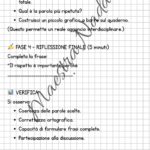 totale.
• Qual è la parola più ripetuta?
• Costruisci un piccolo grafico a barre sul quaderno.
(Questo permette un reale aggancio interdisciplinare.)
FASE 4 – RIFLESSIONE FINALE (5 minuti)
Completa la frase:
"Il rispetto è importante
VERIFICA
Si osserva:
• Coerenza delle parole scelte.
• Correttezza ortografica.
• Capacità di formulare frasi complete.
• Partecipazione alla discussione.
MaestraNada